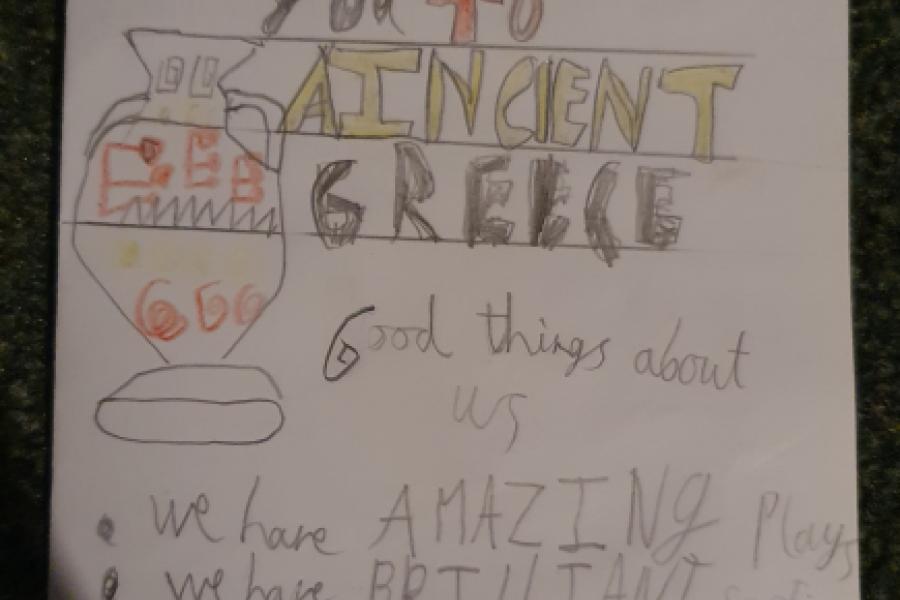 you to
AINCIENT
GREECE
Good things about
us
we have AMAZING Plays
we have BRILLIANT